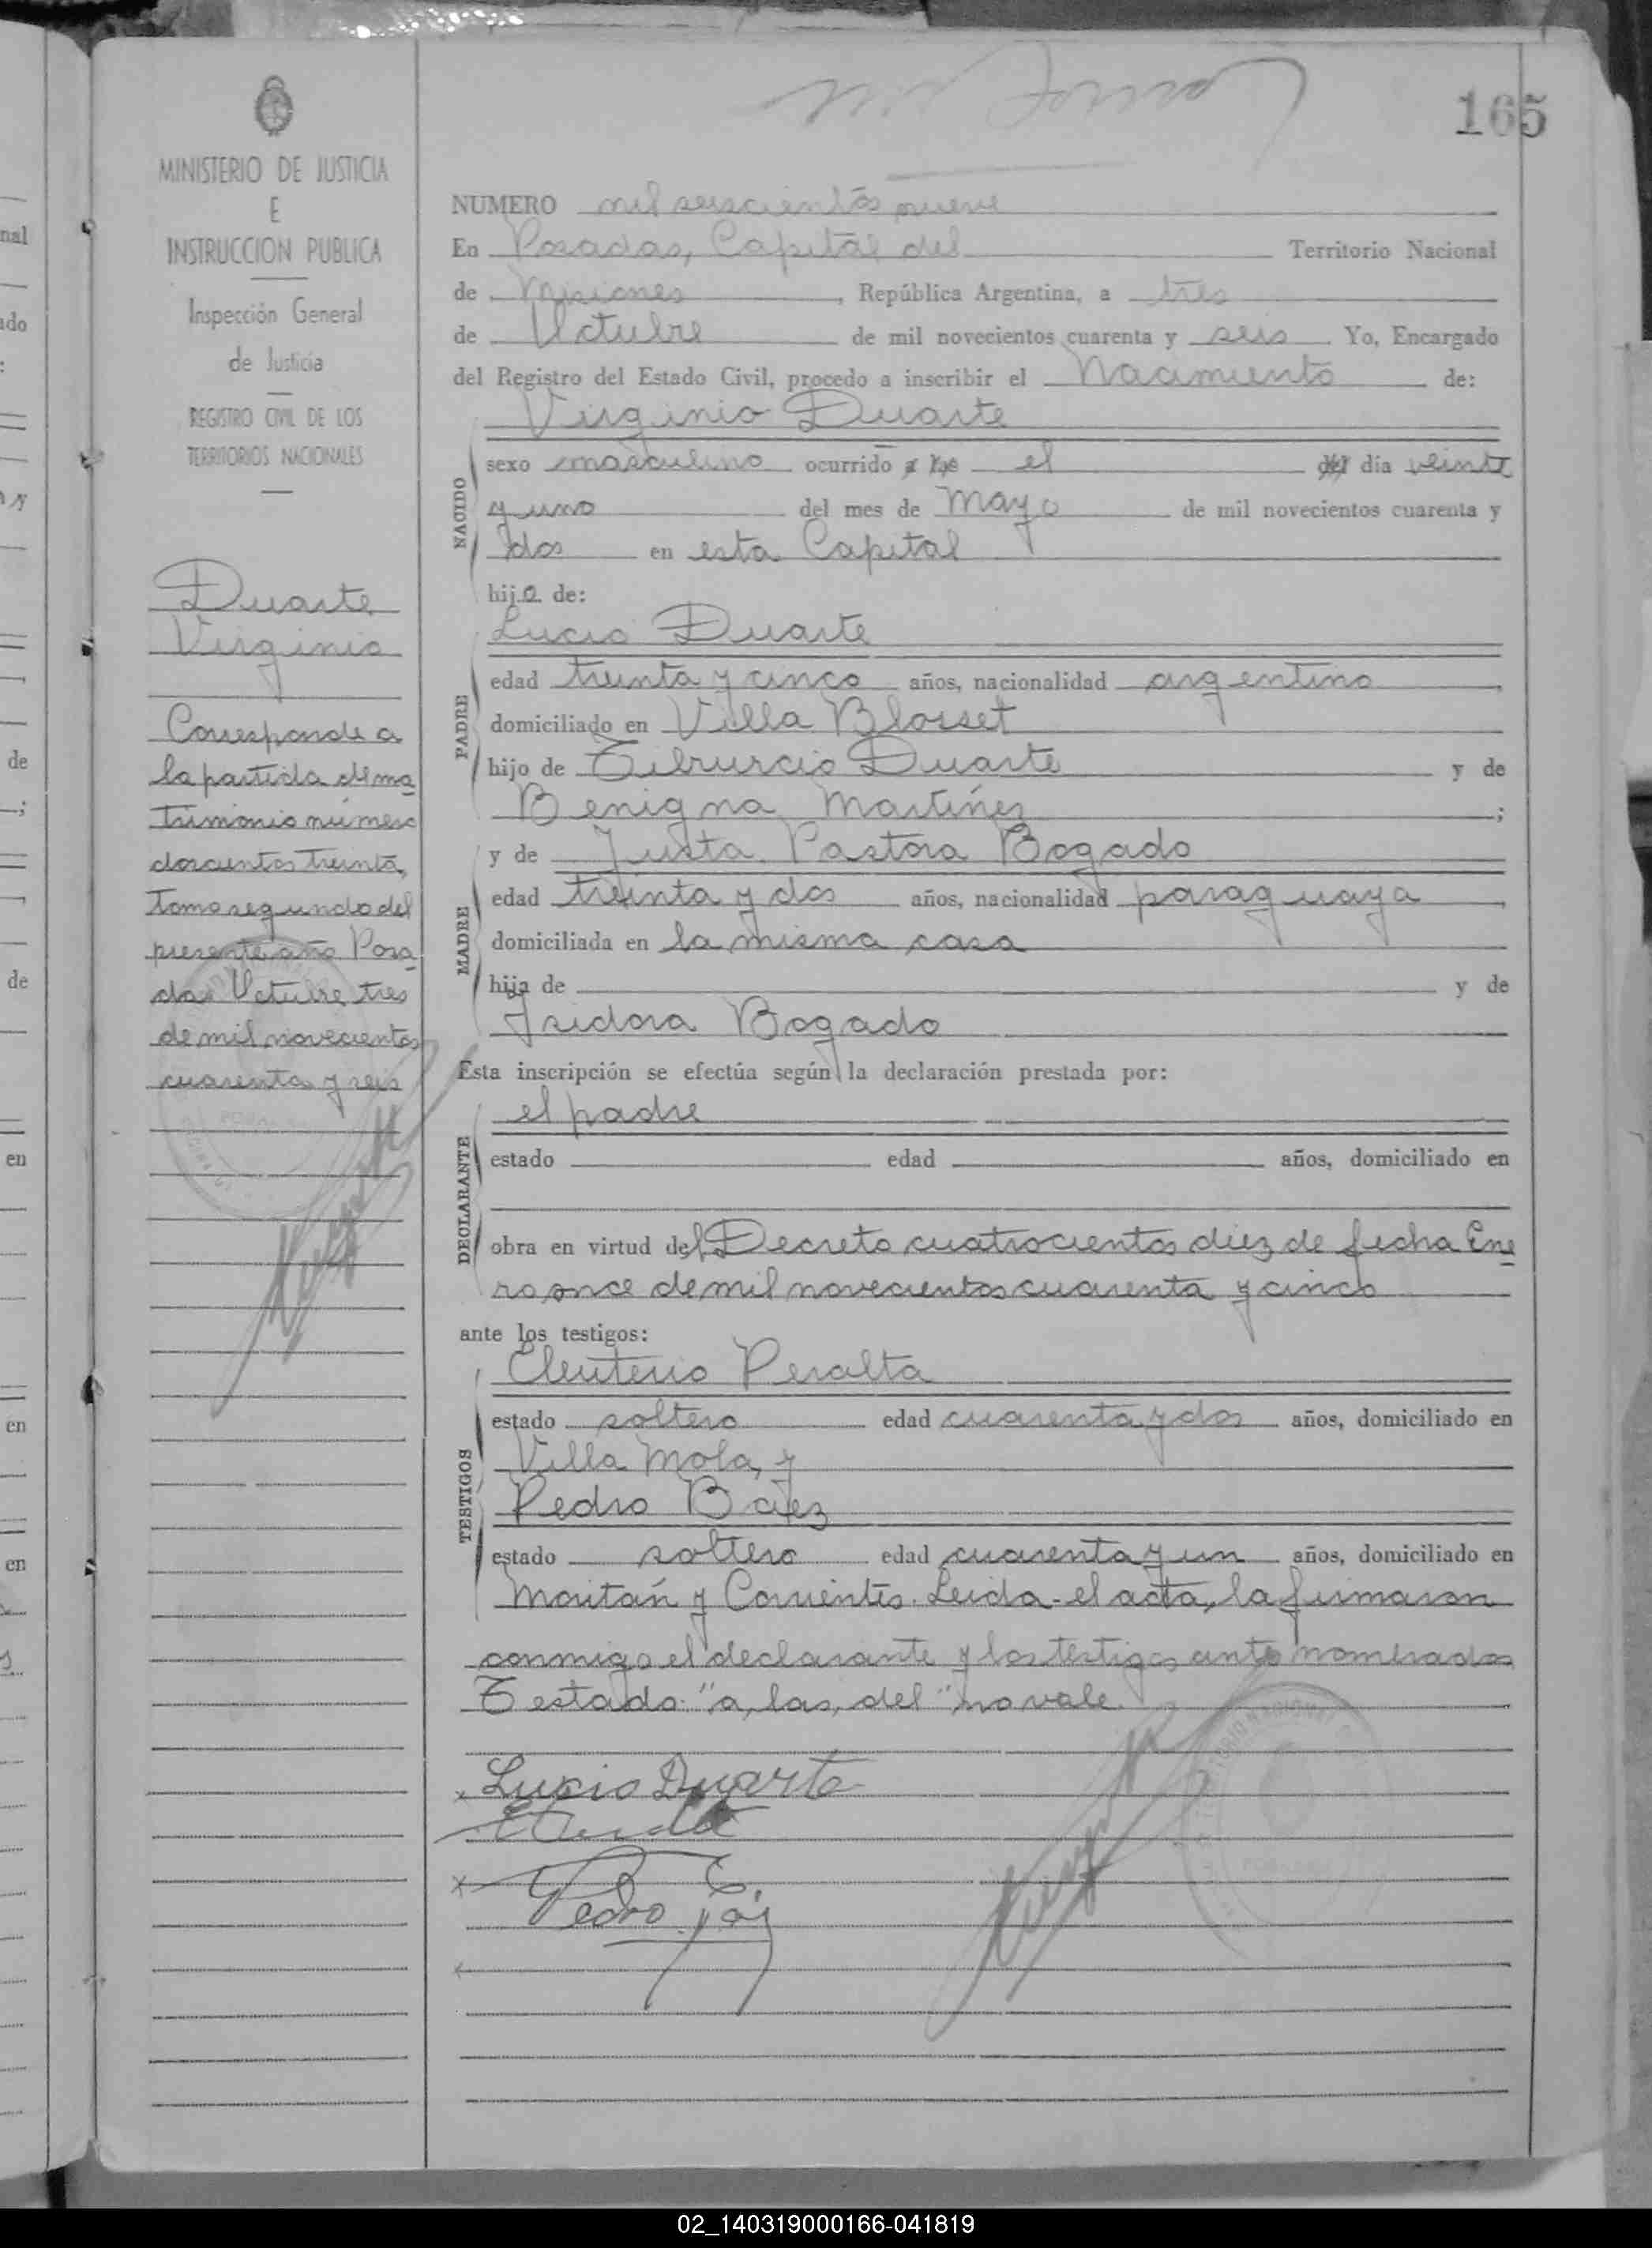 165
MINISTERIO DE JUSTICIA
E
INSTRUCCION PUBLICA
Inspección General
de Justicia
REGISTRO CIVIL DE LOS
TERRITORIOS NACIONALES
Duarte
Virginio
Corresponde a
la partida de ma
trimonio número
doscientos treinta,
Tomo segundo del
presente año Posa
das Octubre tres
de mil novecientos
cuarenta y seis
NUMERO mil seiscientos nueve
En Posadas, Capital del Territorio Nacional
de Misiones, República Argentina, a tres
de Octubre de mil novecientos cuarenta y seis Yo, Encargado
del Registro del Estado Civil, procedo a inscribir el Nacimiento de:
Virginio Duarte
NACIDO
sexo masculino ocurrido a las el del dia veinte
y uno del mes de Mayo de mil novecientos cuarenta y
dos en esta Capital
hijo de:
Lucio Duarte
PADRE
edad treinta y cinco años, nacionalidad argentino
domiciliado en Villa Blosset
hijo de Tiburcio Duarte y de
Benigna Martínez;
y de Justa Pastora Bogado
MADRE
edad treinta y dos años, nacionalidad paraguaya,
domiciliada en la misma casa
hija de y de
Isidora Bogado
Esta inscripción se efectúa según la declaración prestada por:
el padre
DECLARANTE
estado edad años, domiciliado en
obra en virtud del Decreto cuatrocientos diez de fecha Ene
ro once de mil novecientos cuarenta y cinco
ante los testigos:
Eleuterio Peralta
TESTIGOS
estado soltero edad cuarenta y dos años, domiciliado en
Villa Mola, y
Pedro Báez
estado soltero edad cuarenta y un años, domiciliado en
Moritán y Corrientes. Leida el acta, la firmaron
conmigo el declarante y los testigos ante nombrados
Testado: "a, las, del" no vale.
Lucio Duarte
Pedro
02_140319000166-041819